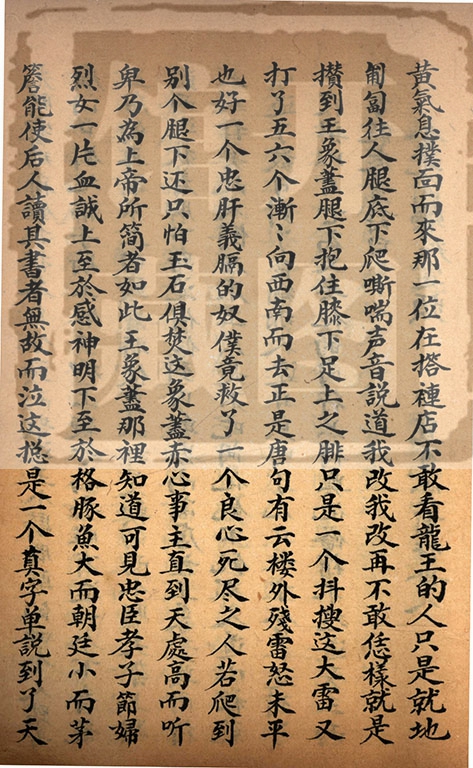 黃氣息撲面而來那一位在搭褳店不敢看龍王的人只是就地
匍匐往人腿底下爬嘶喘声音説道我改我改再不敢恁樣就是
攢到王象藎腿下抱住膝下足上之腓只是一个抖搜这大雷又
打了五六个漸〻向西南而去正是唐句有云楼外殘雷怒未平
也好一个忠肝義膈的奴僕竟救了一个良心死尽之人若爬到
别个腿下还只怕玉石俱焚这象藎赤心事主直到天處高而听
卑乃為上帝所简者如此王象藎那裡知道可見忠臣孝子節婦
烈女一片血誠上至於感神明下至於格豚魚大而朝廷小而茅
簷能使后人讀其書者無故而泣这捴是一个真字单説到了天